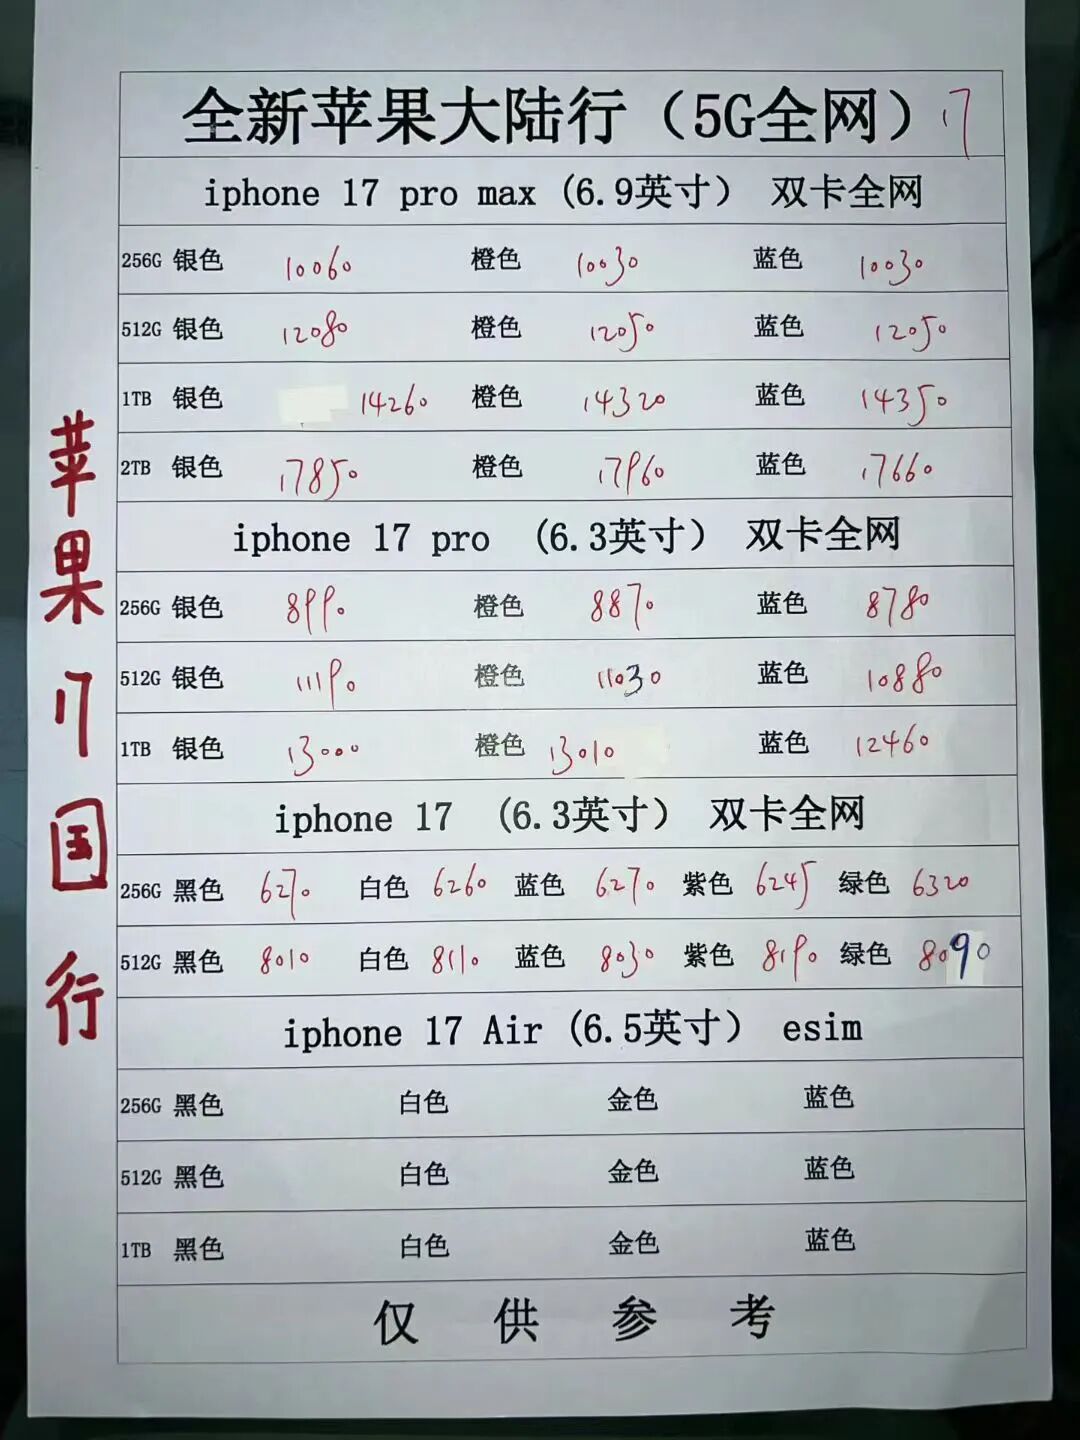 全新苹果大陆行（5G全网）17
iphone 17 pro max (6.9英寸） 双卡全网
256G 银色 10060 橙色 10030 蓝色 10030
512G 银色 12080 橙色 12050 蓝色 12050
1TB 银色 14260 橙色 14320 蓝色 14350
2TB 银色 17850 橙色 17960 蓝色 17660
iphone 17 pro (6.3英寸） 双卡全网
256G 银色 8990 橙色 8870 蓝色 8780
512G 银色 11190 橙色 11030 蓝色 10880
1TB 银色 13000 橙色 13010 蓝色 12460
iphone 17 (6.3英寸） 双卡全网
256G 黑色 6270 白色 6260 蓝色 6270 紫色 6245 绿色 6320
512G 黑色 8010 白色 8110 蓝色 8030 紫色 8190 绿色 8090
iphone 17 Air (6.5英寸） esim
256G 黑色 白色 金色 蓝色
512G 黑色 白色 金色 蓝色
1TB 黑色 白色 金色 蓝色
仅 供 参 考
苹果17国行